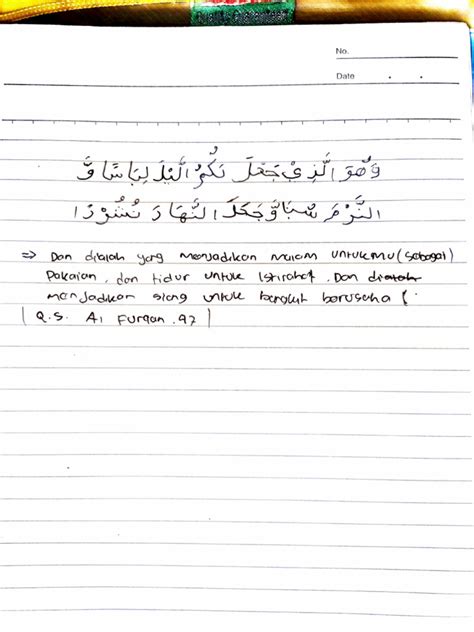 No.
Date
وَهُوَ الَّذِيْ جَعَلَ لَكُمُ الَّيْلَ لِبَاسًا وَّ
النَّوْمَ سُبَاتًا وَّجَعَلَ النَّهَارَ نُشُوْرًا
=> Dan dialah yang menjadikan malam untukmu (sebagai)
Pakaian, dan tidur untuk istirahat. Dan dia
menjadikan siang untuk bangkit berusaha (
| Q.S. Al Furqan . 47 |